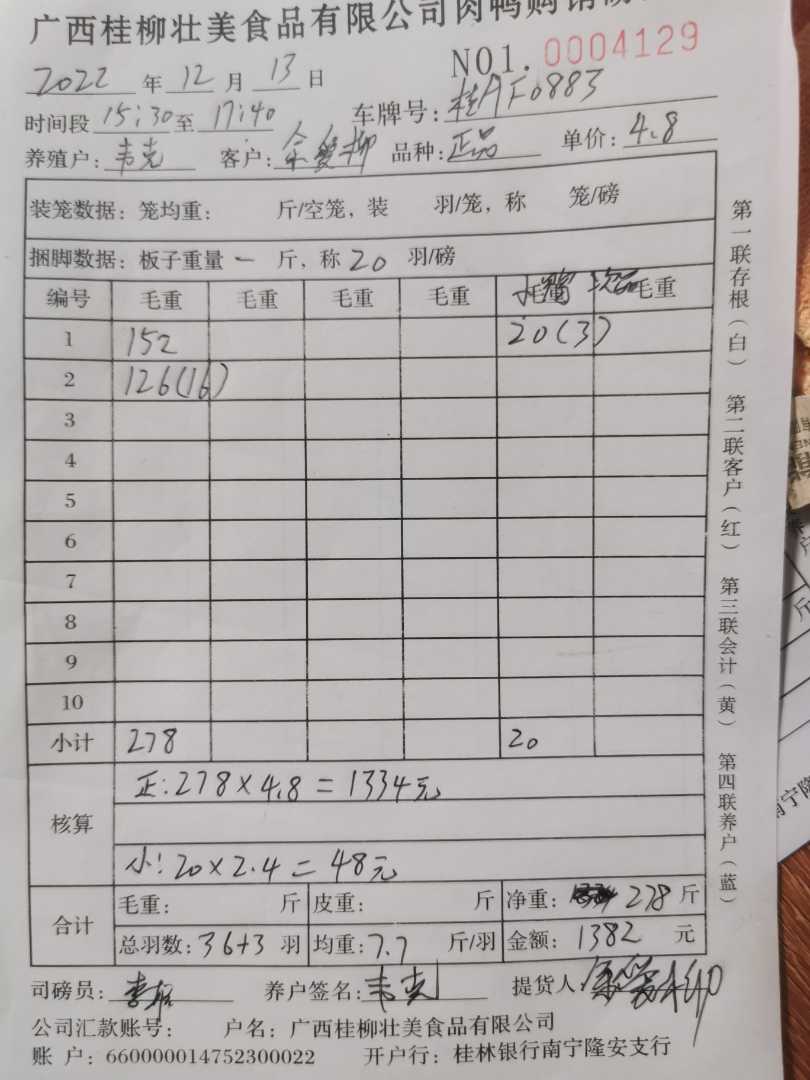 广西桂柳壮美食品有限公司肉鸭购销
NO1.0004129
2022年12月13日
时间段15:30至17:40 车牌号:桂AF0883
养殖户:韦克 客户:余爱柳 品种:正品 单价:4.8
装笼数据:笼均重: 斤/空笼,装 羽/笼,称 笼/磅
捆脚数据:板子重量一斤,称20羽/磅
编号 毛重 毛重 毛重 毛重 毛重 次品毛重
1 152 20(3)
2 126(16)
3
4
5
6
7
8
9
10
小计 278 20
核算 正:278×4.8=1334元
小:20×2.4=48元
合计 毛重: 斤 皮重: 斤 净重:278斤
总羽数:36+3羽 均重:7.7斤/羽 金额:1382元
司磅员:李 养户签名:韦克 提货人:余爱柳
公司汇款账号: 户名:广西桂柳壮美食品有限公司
账 户:660000014752300022 开户行:桂林银行南宁隆安支行
第一联存根(白) 第二联客户(红) 第三联会计(黄) 第四联养户(蓝)